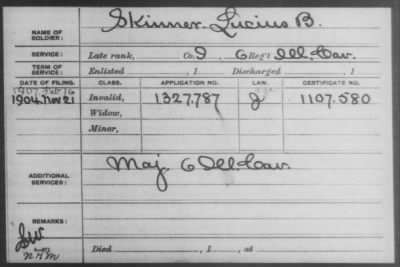 NAME OF SOLDIER: Skinner, Lucius B.
SERVICE: Late rank, Co. I 6 Reg't Ill. Cav.
TERM OF SERVICE: Enlisted , 1 Discharged , 1
DATE OF FILING. CLASS. APPLICATION NO. LAW. CERTIFICATE NO.
1907 Feb 16
1904 Nov 21 Invalid, 1327.787 1107.580
Widow,
Minor,
ADDITIONAL SERVICES: Maj. 6 Ill. Cav.
REMARKS:
Died , 1 , at